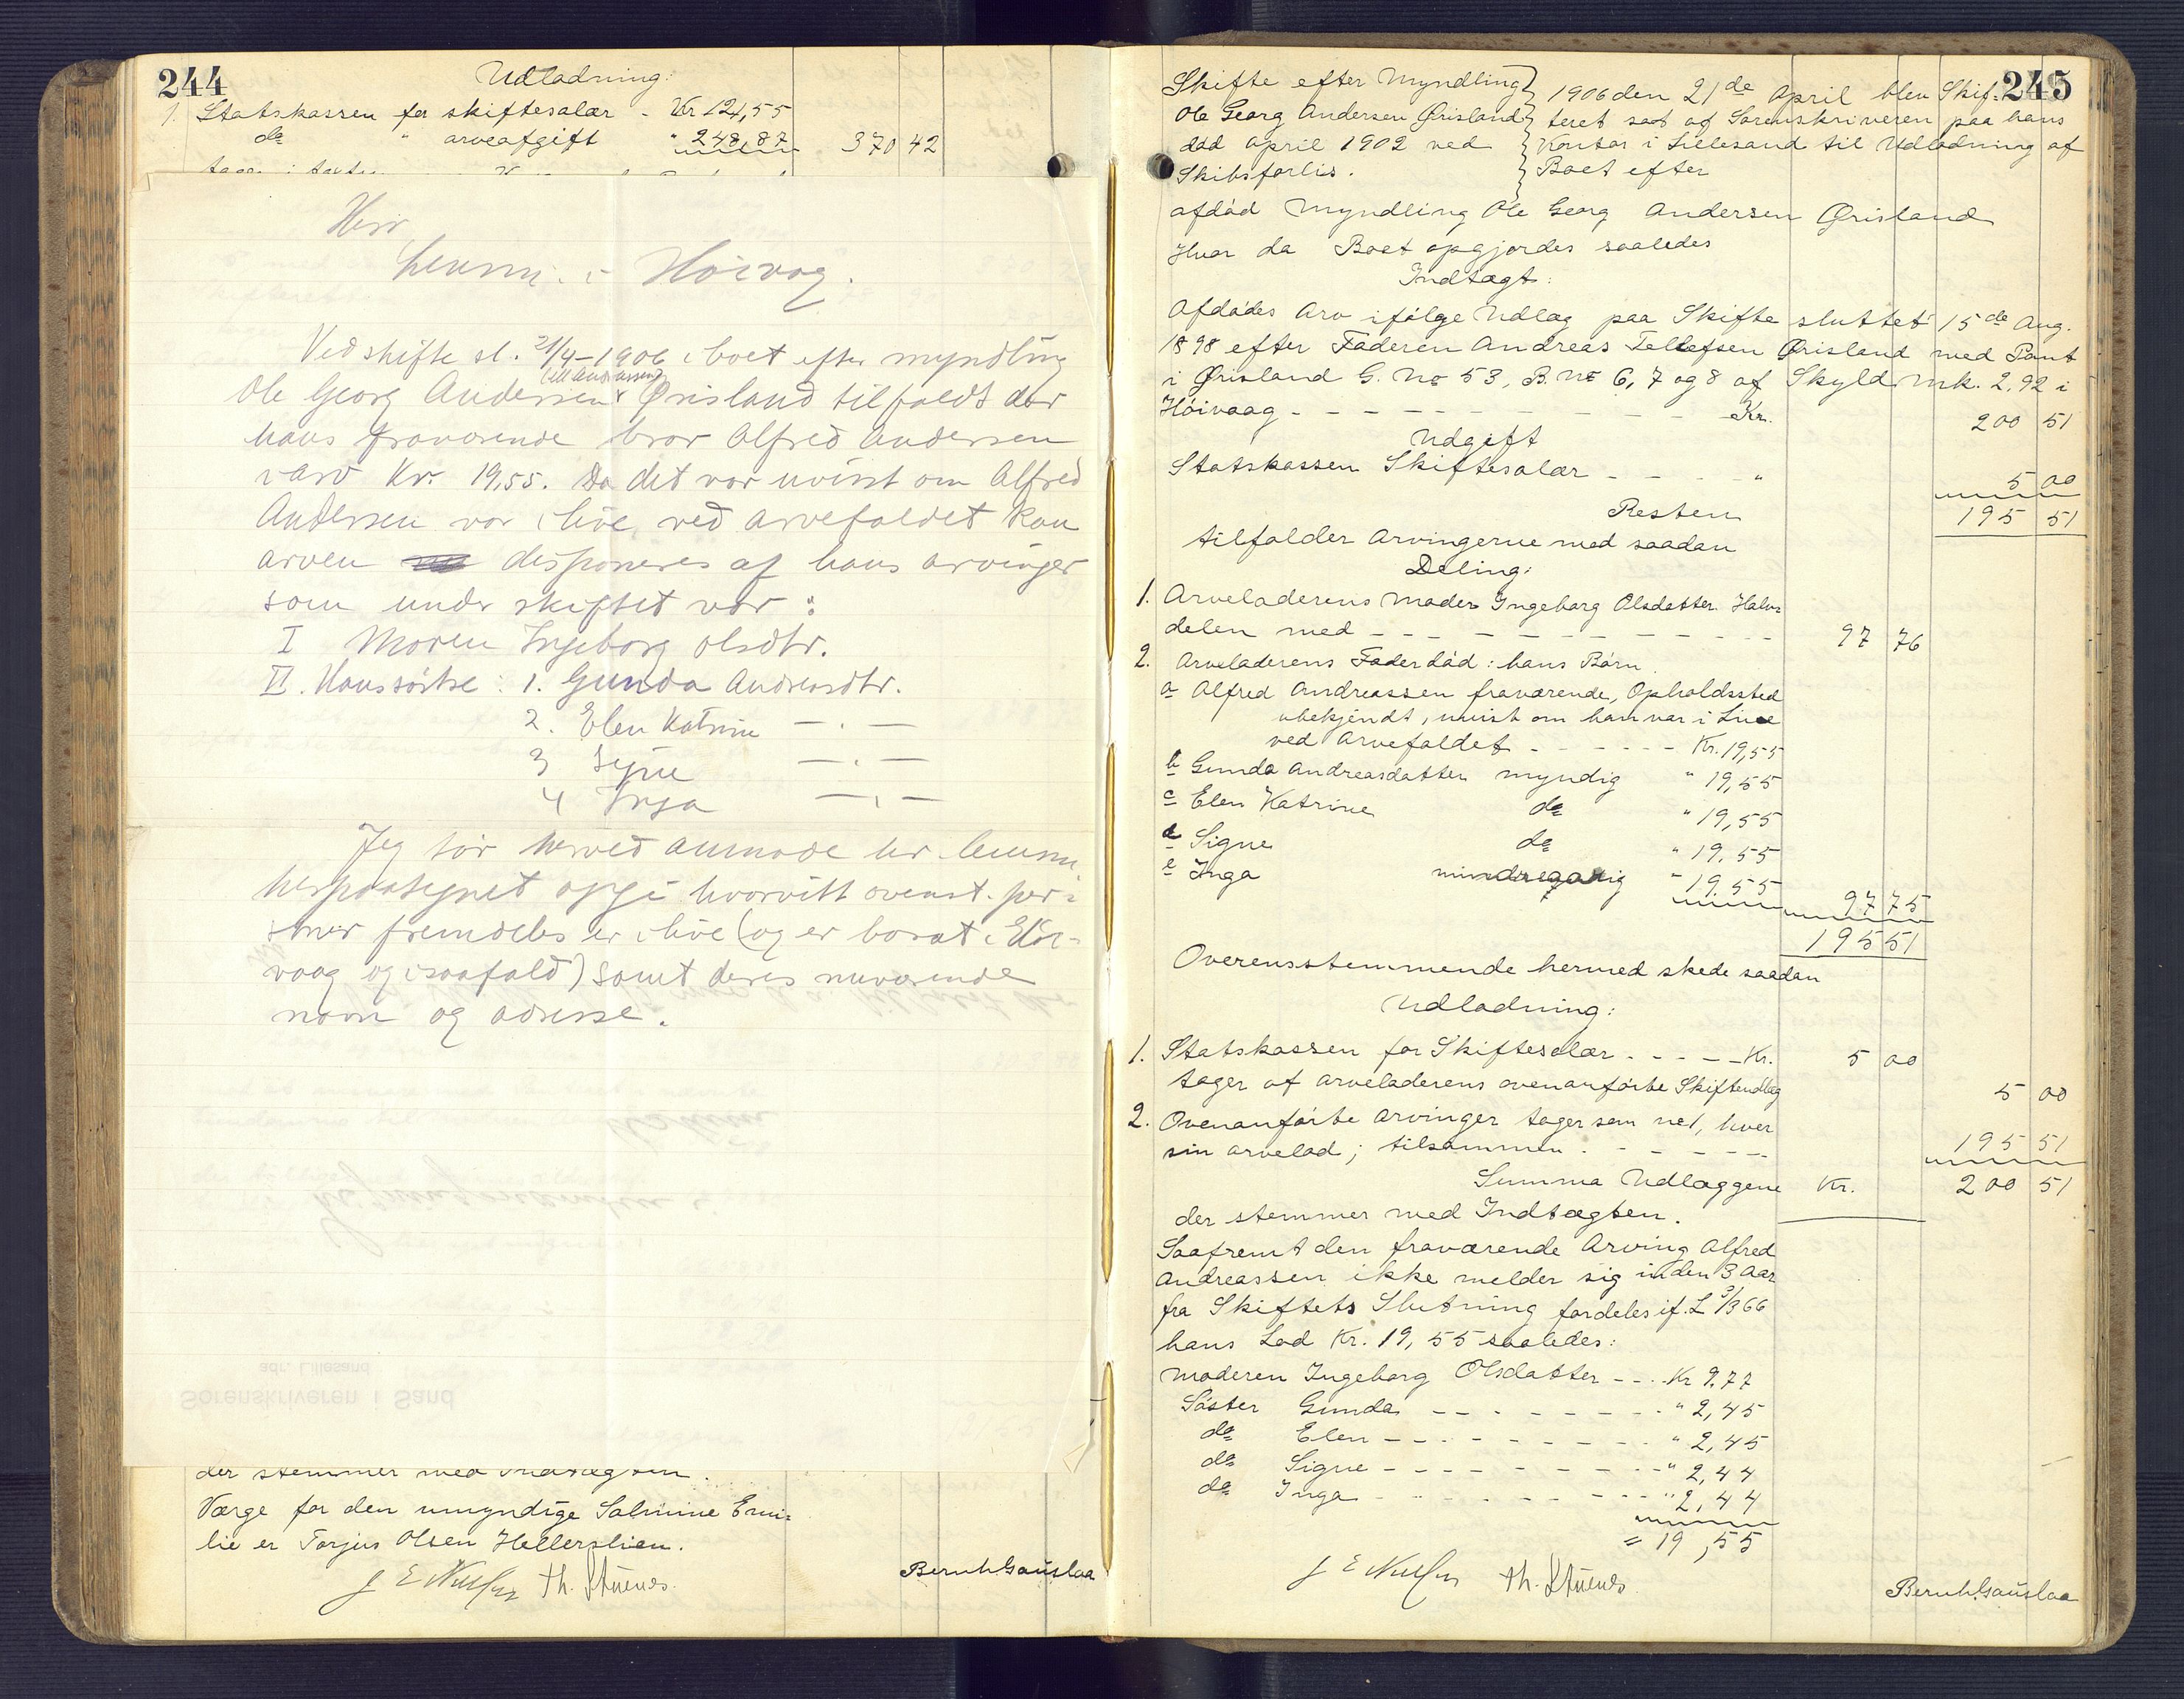 244
Udlodning:
1. Statskassen for skiftesalær - Kr 124,55
do " arveafgift " 248,87 370 42
Herr
Lensm. i Höivag.
Ved skifte sl. 21/4-1906 i boet efter myndling
(ell Andreassen)
Ole Georg Andersen Örisland tilfaldt der
hans fraværende bror Alfred Andersen
i arv Kr. 19,55. Da det var uvisst om Alfred
Andersen var i live ved arvefaldet kan
arven disponeres af hans arvinger
som under skiftet var :
I Moren Ingeborg Olsdtr.
II. Hans söstre : 1. Gunda Andreasdtr.
2. Elen Katrine — . —
3 Signe — . —
4 Inga — . —
Jeg tör herved anmode hr. lensm
her paategnet opgi hvorvitt ovenst. per-
soner fremdeles er i live (og er bosat i Höi-
vaag og i saafald) samt deres nuværende
navn og adresse.
adr. Lillesand
Sorenskriveren i Sand
der stemmer med Indtægten.
Værge for den umyndige Salmine Emi-
lie er Torjus Olsen Hellerslien.
Th. Stüenes.
245
Skifte efter Myndling
Ole Georg Andersen Örisland
död April 1902 ved
Skibsforlis.
1906 den 21de April blev Skif-
teret sat af Sorenskriveren paa hans
Kontor i Lillesand til Udlodning af
Boet efter
afdöd Myndling Ole Georg Andersen Örisland
Hvor da Boet opgjordes saaledes
Indtægt:
Afdödes Arv ifölge Udlæg paa Skifte sluttet 15de Aug.
1898 efter Faderen Andreas Tellefsen Örisland med Pant
i Örisland G. No 53, B. No 6, 7 og 8 af Skyld Mk. 2.92 i
Höivaag - - - - - - - - - - - Kr. 200 51
Udgift
Statskassen Skiftesalær - - - - " 5 00
Resten 195 51
tilfalder Arvingerne med saadan
Deling:
1. Arveladerens Moder Ingeborg Olsdatter Halv-
delen med - - - - - - - - - - 97 76
2. Arveladerens Fader död: hans Börn
a Alfred Andreassen fraværende, Opholdssted
ubekjendt, uvist om han var i Live
ved Arvefaldet - - - - - - Kr. 19,55
b Gunda Andreasdatter myndig " 19,55
c Elen Katrine do " 19,55
d Signe do " 19.55
e Inga mindreaarig " 19.55 97 75
195 51
Overensstemmende hermed skede saadan
Udlodning:
1. Statskassen for Skiftesalær - - - - - Kr. 5 00
tager af arveladerens ovenanförte Skifteudlæg 5 00
2. Ovenanförte Arvinger tager som rest, hver
sin arvelod; tilsammen - - - - - - 195 51
Summa Udlæggene Kr. 200 51
der stemmer med Indtægten.
Saafremt den fraværende Arving Alfred
Andreassen ikke melder sig inden 3 Aar
fra Skiftets Slutning fordeles if. L 9/3 66
hans Lod Kr. 19,55 saaledes:
Moderen Ingeborg Olsdatter - - - Kr 9.77
Söster Gunda - - - - - - - - " 2,45
do Elen - - - - - - - - " 2,45
do Signe - - - - - - - - " 2,44
do Inga - - - - - - - - " 2,44
= 19,55
Th. Stüenes.